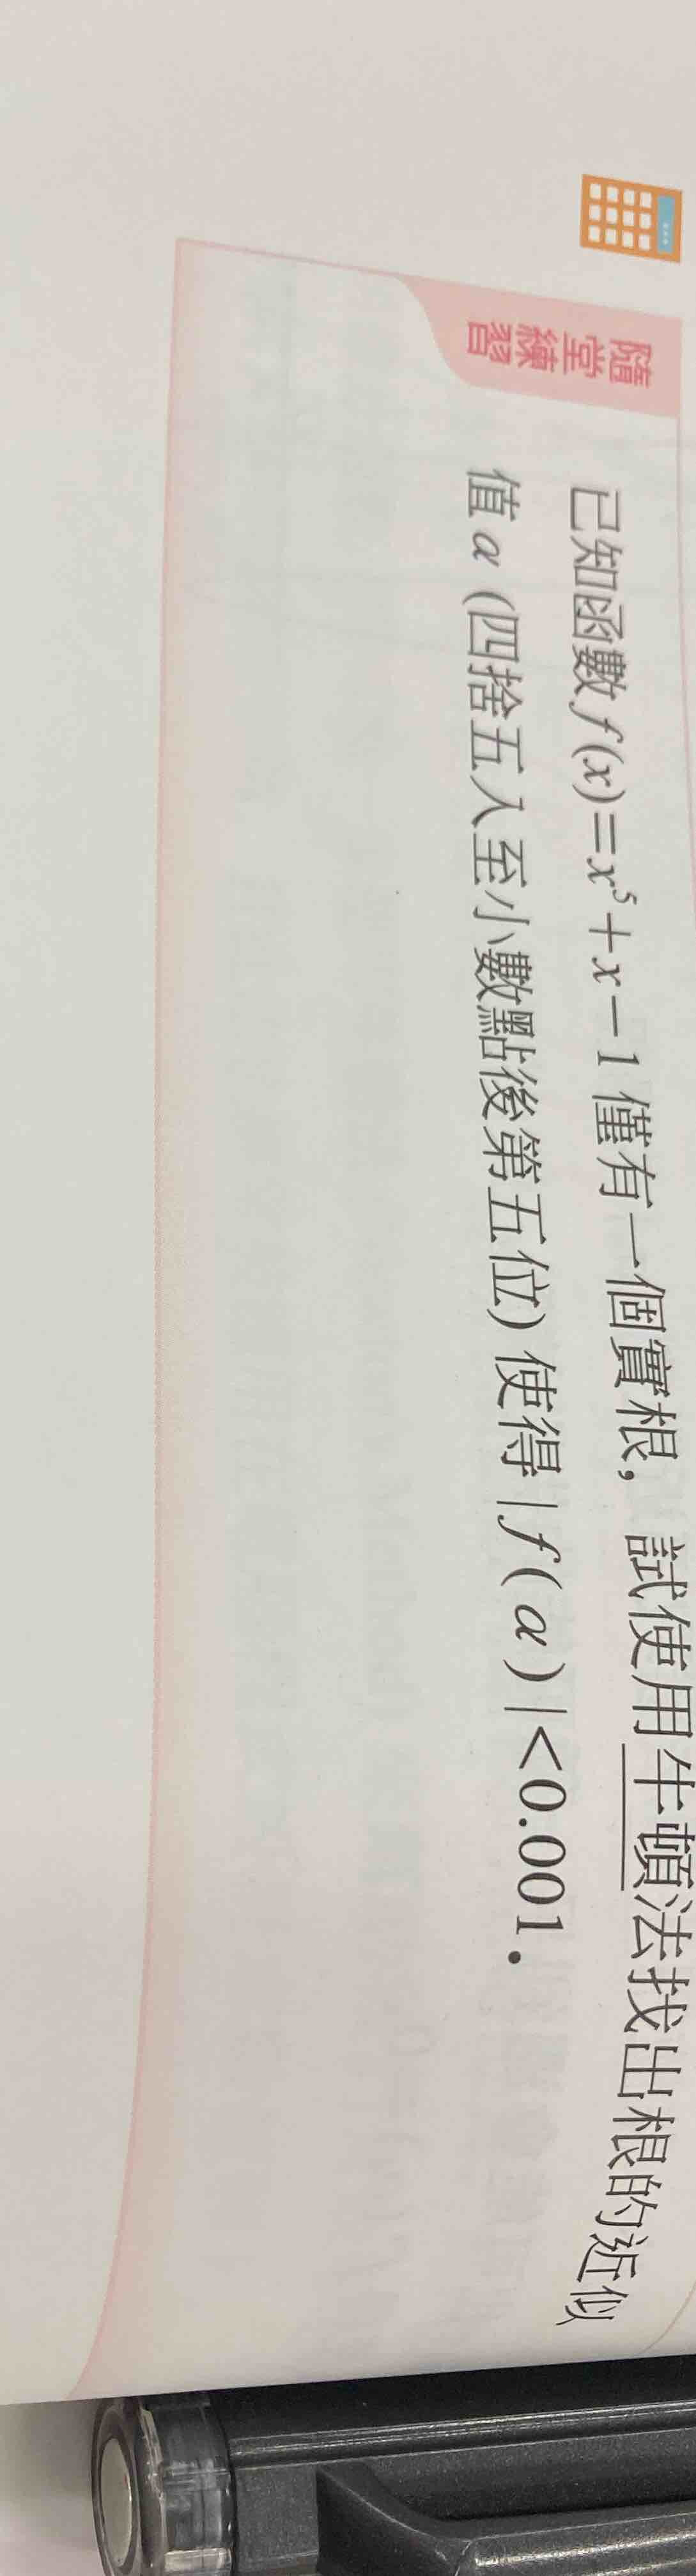 隨堂練習
已知函數f(x)=x⁵+x−1 僅有一個實根，試使用牛頓法找出根的近似
值α (四捨五入至小數點後第五位) 使得|f(α)|<0.001.